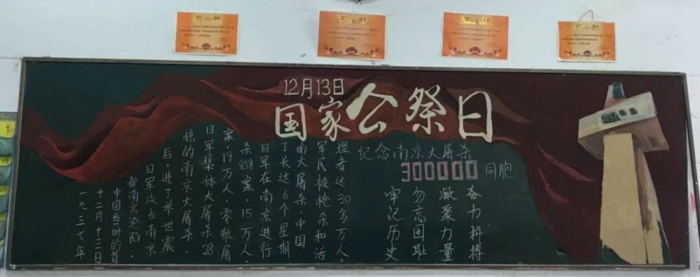 12月13日
国家公祭日
纪念南京大屠杀
300000同胞
一九三七年
十二月十三日
中国当时的首
都南京沦陷,
日军攻占南京
后进了举世震
惊的南京大屠杀
日军集体大屠杀28
案19万人,零散屠
杀858案,15万人
日军在南京进行
了长达6个星期
的大屠杀,中国
军民被枪杀和活
埋者达30多万人
牢记历史
勿忘国耻
凝聚力量
奋力拼搏